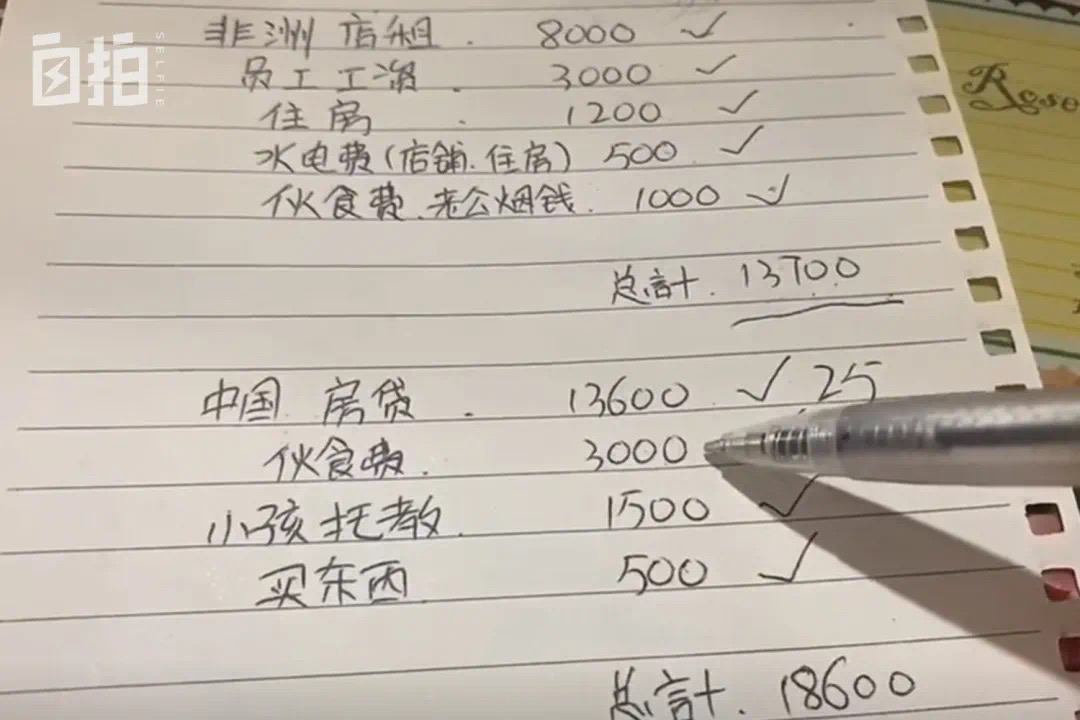 自拍
SELFIE
非洲 店租. 8000 ✓
员工工资. 3000 ✓
住房. 1200 ✓
水电费(店铺.住房) 500 ✓
伙食费.老公烟钱. 1000 ✓
总計. 13700
中国 房贷. 13600 ✓ 25
伙食费. 3000
小孩托教. 1500 ✓
买东西 500 ✓
总計. 18600